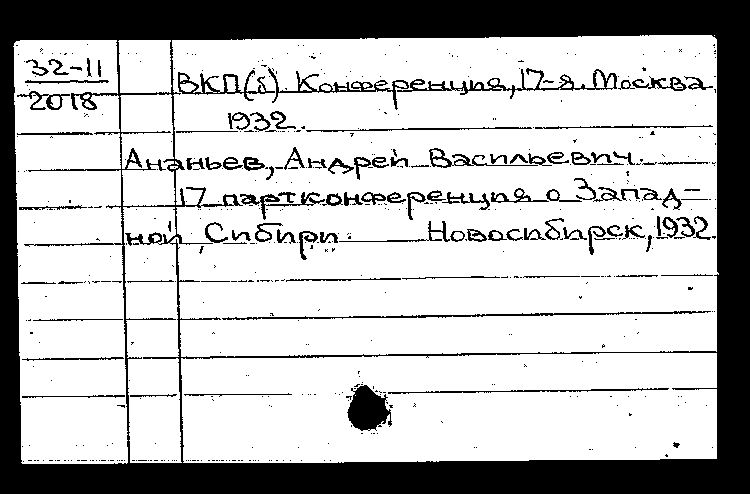 32-11
2018
ВКП(б). Конференция, 17-я. Москва
1932.
Ананьев, Андрей Васильевич.
17 партконференция о Запад-
ной Сибири. Новосибирск, 1932.